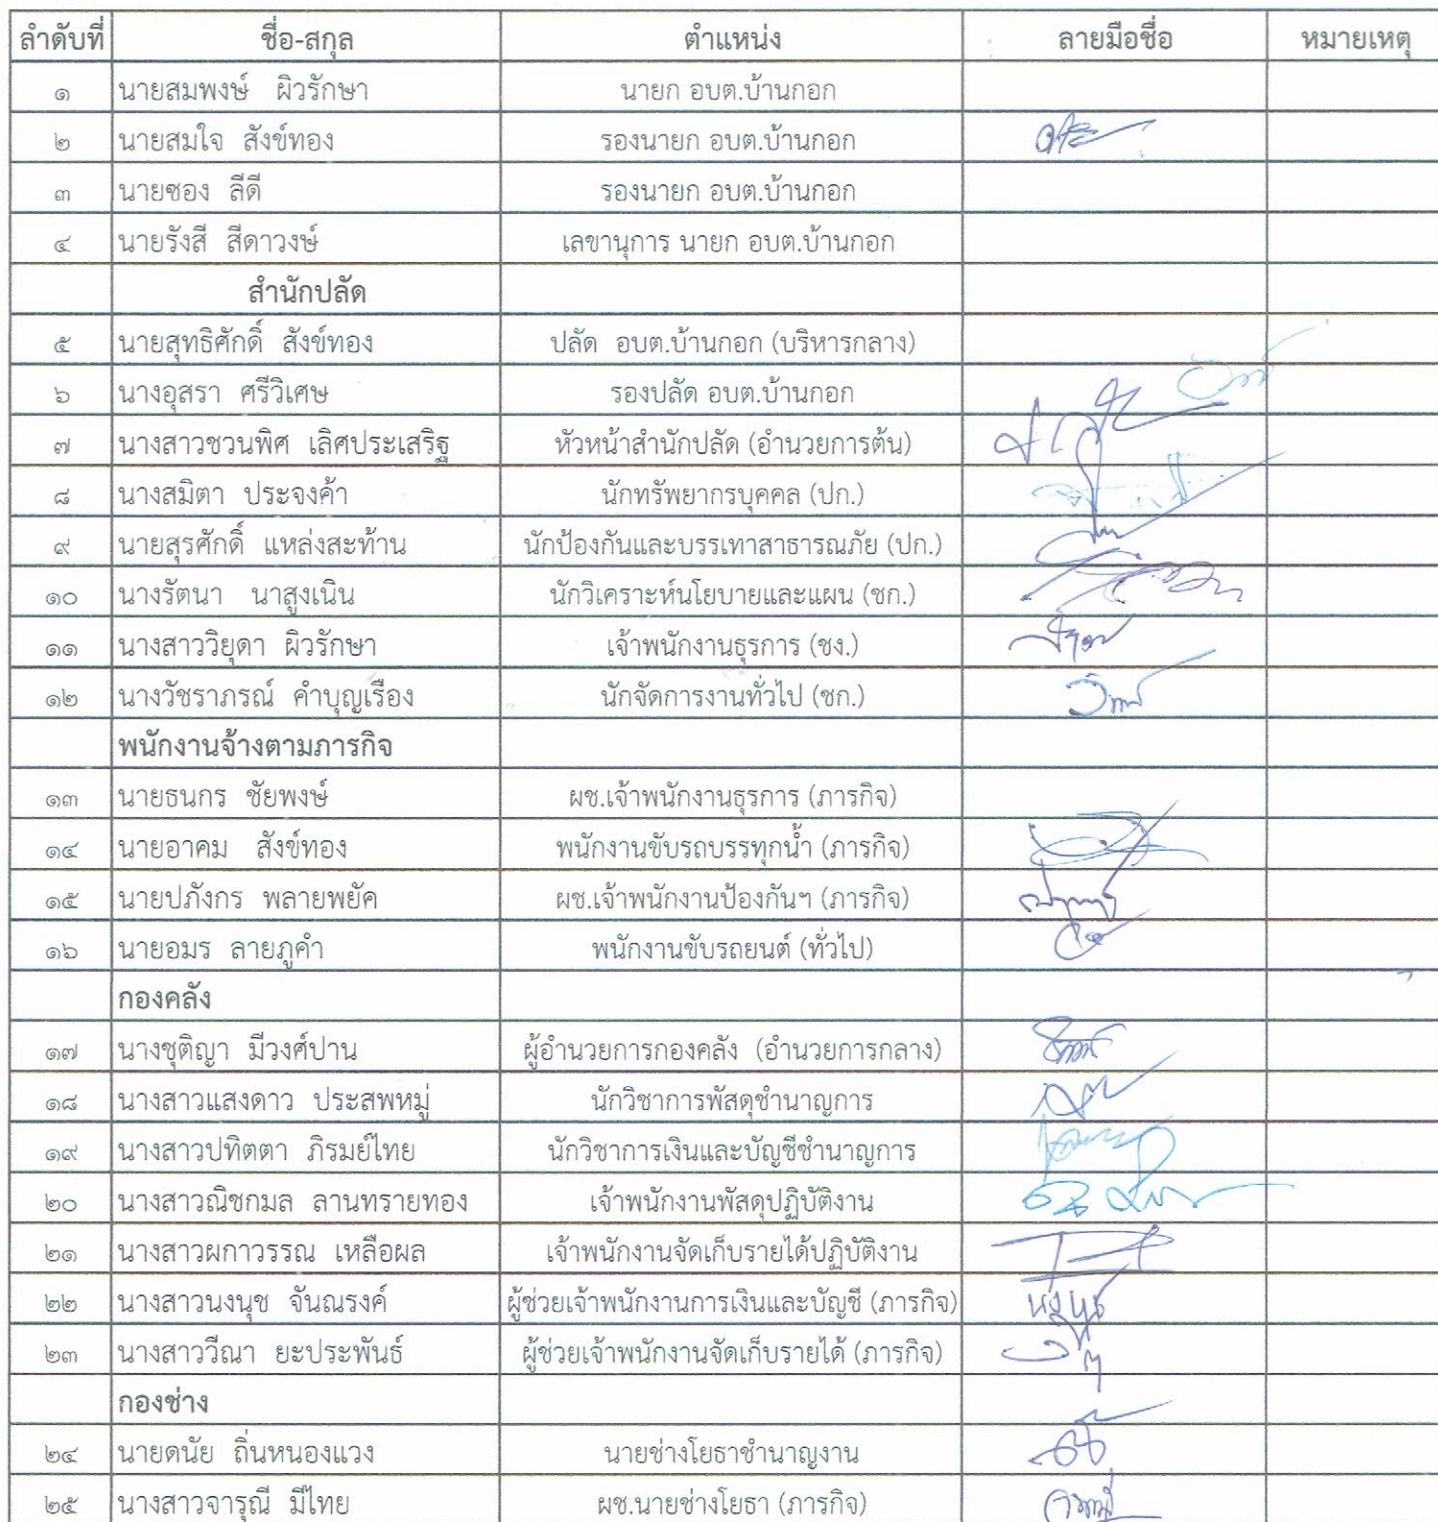 ลำดับที่ ชื่อ-สกุล ตำแหน่ง ลายมือชื่อ หมายเหตุ
๑ นายสมพงษ์ ผิวรักษา นายก อบต.บ้านกอก
๒ นายสมใจ สังข์ทอง รองนายก อบต.บ้านกอก
๓ นายซอง ลีดี รองนายก อบต.บ้านกอก
๔ นายรังสี สีดาวงษ์ เลขานุการ นายก อบต.บ้านกอก
สำนักปลัด
๕ นายสุทธิศักดิ์ สังข์ทอง ปลัด อบต.บ้านกอก (บริหารกลาง)
๖ นางอุสรา ศรีวิเศษ รองปลัด อบต.บ้านกอก
๗ นางสาวชวนพิศ เลิศประเสริฐ หัวหน้าสำนักปลัด (อำนวยการต้น)
๘ นางสมิตา ประจงค้า นักทรัพยากรบุคคล (ปก.)
๙ นายสุรศักดิ์ แหล่งสะท้าน นักป้องกันและบรรเทาสาธารณภัย (ปก.)
๑๐ นางรัตนา นาสูงเนิน นักวิเคราะห์นโยบายและแผน (ชก.)
๑๑ นางสาววิยุดา ผิวรักษา เจ้าพนักงานธุรการ (ชง.)
๑๒ นางวัชราภรณ์ คำบุญเรือง นักจัดการงานทั่วไป (ชก.)
พนักงานจ้างตามภารกิจ
๑๓ นายธนกร ชัยพงษ์ ผช.เจ้าพนักงานธุรการ (ภารกิจ)
๑๔ นายอาคม สังข์ทอง พนักงานขับรถบรรทุกน้ำ (ภารกิจ)
๑๕ นายปภังกร พลายพยัค ผช.เจ้าพนักงานป้องกันฯ (ภารกิจ)
๑๖ นายอมร ลายภูคำ พนักงานขับรถยนต์ (ทั่วไป)
กองคลัง
๑๗ นางชุติญา มีวงศ์ปาน ผู้อำนวยการกองคลัง (อำนวยการกลาง)
๑๘ นางสาวแสงดาว ประสพหมู่ นักวิชาการพัสดุชำนาญการ
๑๙ นางสาวปทิตตา ภิรมย์ไทย นักวิชาการเงินและบัญชีชำนาญการ
๒๐ นางสาวณิชกมล ลานทรายทอง เจ้าพนักงานพัสดุปฏิบัติงาน
๒๑ นางสาวผกาวรรณ เหลือผล เจ้าพนักงานจัดเก็บรายได้ปฏิบัติงาน
๒๒ นางสาวนงนุช จันณรงค์ ผู้ช่วยเจ้าพนักงานการเงินและบัญชี (ภารกิจ) นงนุช
๒๓ นางสาววีณา ยะประพันธ์ ผู้ช่วยเจ้าพนักงานจัดเก็บรายได้ (ภารกิจ)
กองช่าง
๒๔ นายดนัย ถิ่นหนองแวง นายช่างโยธาชำนาญงาน
๒๕ นางสาวจารุณี มีไทย ผช.นายช่างโยธา (ภารกิจ)